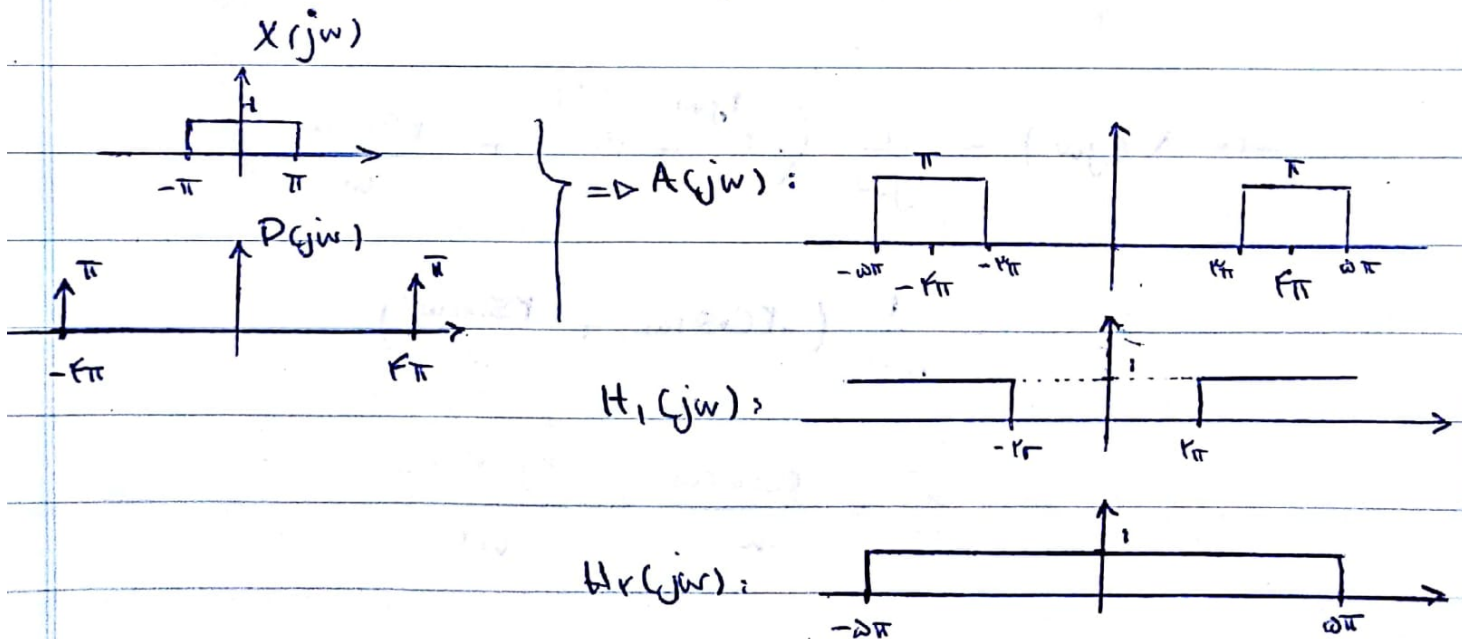 X(jw)
1
-π π
P(jw)
π π
-۴π ۴π
=> A(jw) :
π π
-۵π -۴π -۳π ۳π ۴π ۵π
H₁(jw) :
1
-۲π ۲π
H۲(jw) :
1
-۵π ۵π